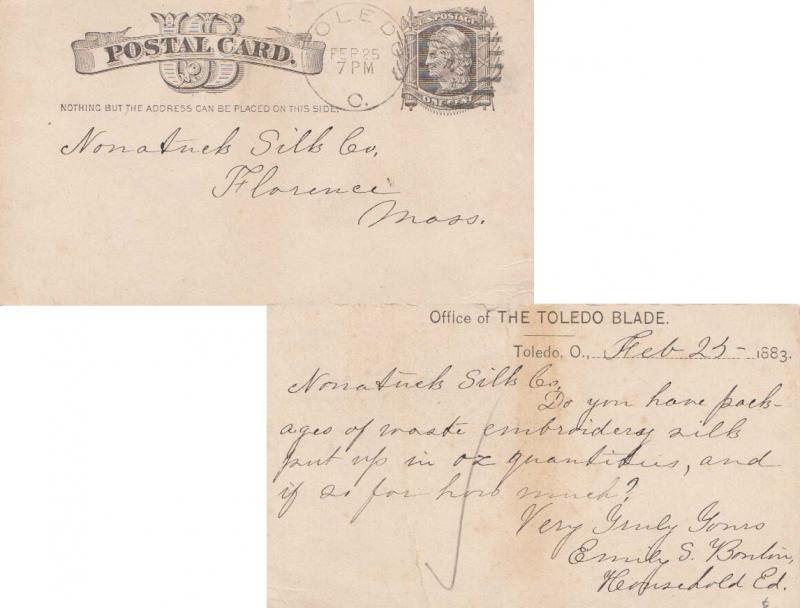 POSTAL CARD.
US
TOLEDO
FEB 25
7 PM
O.
U.S. POSTAGE
ONE CENT
NOTHING BUT THE ADDRESS CAN BE PLACED ON THIS SIDE.
Nonatuck Silk Co,
Florence
Mass.
Office of THE TOLEDO BLADE.
Toledo, O., Feb 25 1883.
Nonatuck Silk Co,
Do you have pack-
ages of waste embroidery silk
put up in oz quantities, and
if so for how much?
Very Truly Yours
Emily S. Bouton,
Household Ed.